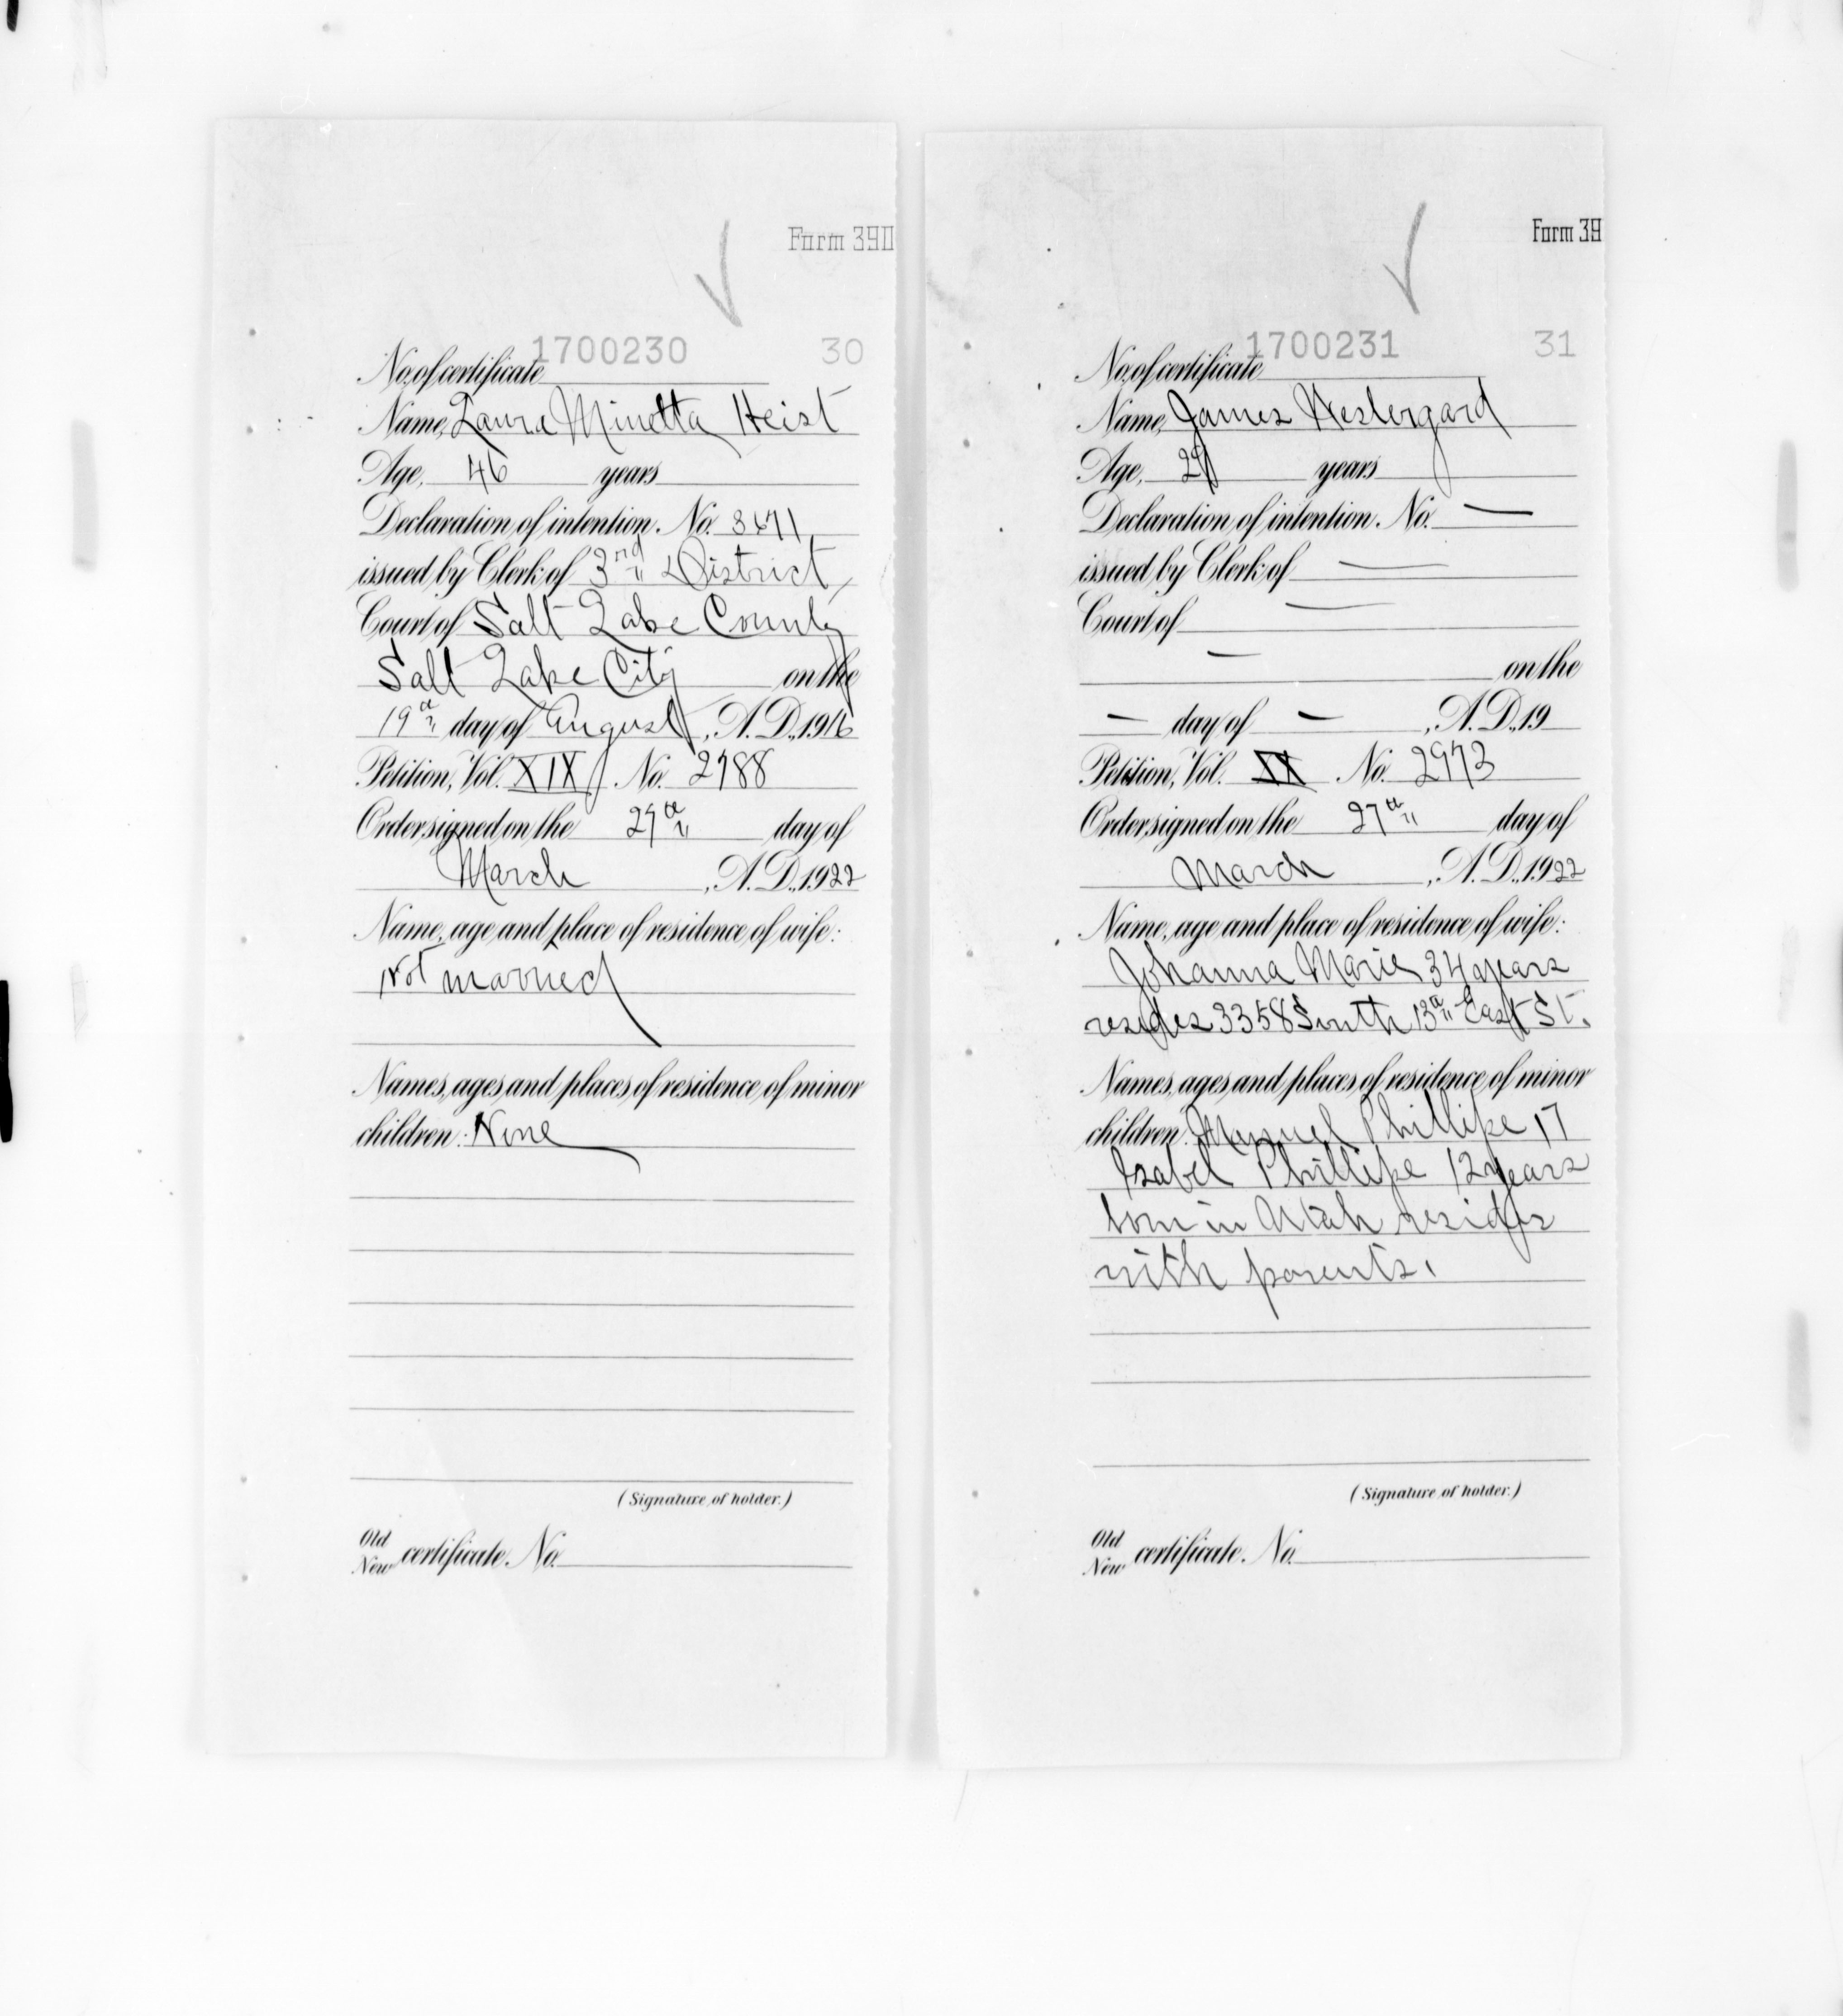 Form 390
1700230 30
No. of certificate
Name, Laura Minetta Heist
Age, 46 years
Declaration of intention. No. 3671
issued by Clerk of 3rd District
Court of Salt Lake County
Salt Lake City on the
19th day of August, A.D., 1916
Petition, Vol. XIX No. 2788
Order signed on the 27th day of
March, A.D., 1922
Name, age and place of residence of wife:
Not married
Names, ages and places of residence of minor
children: None
(Signature of holder.)
Old
New certificate. No.
Form 39
1700231 31
No. of certificate
Name, James Westergard
Age, years
Declaration of intention. No. —
issued by Clerk of —
Court of —
— on the
— day of —, A.D., 19
Petition, Vol. XX No. 2973
Order signed on the 27th day of
March, A.D., 1922
Name, age and place of residence of wife:
Johanna Marie 34 years
resides 3358 South 13th East St.
Names, ages and places of residence of minor
children: Phillipe 17
Isabel Phillipe 12 years
born in Utah resides
with parents.
(Signature of holder.)
Old
New certificate. No.